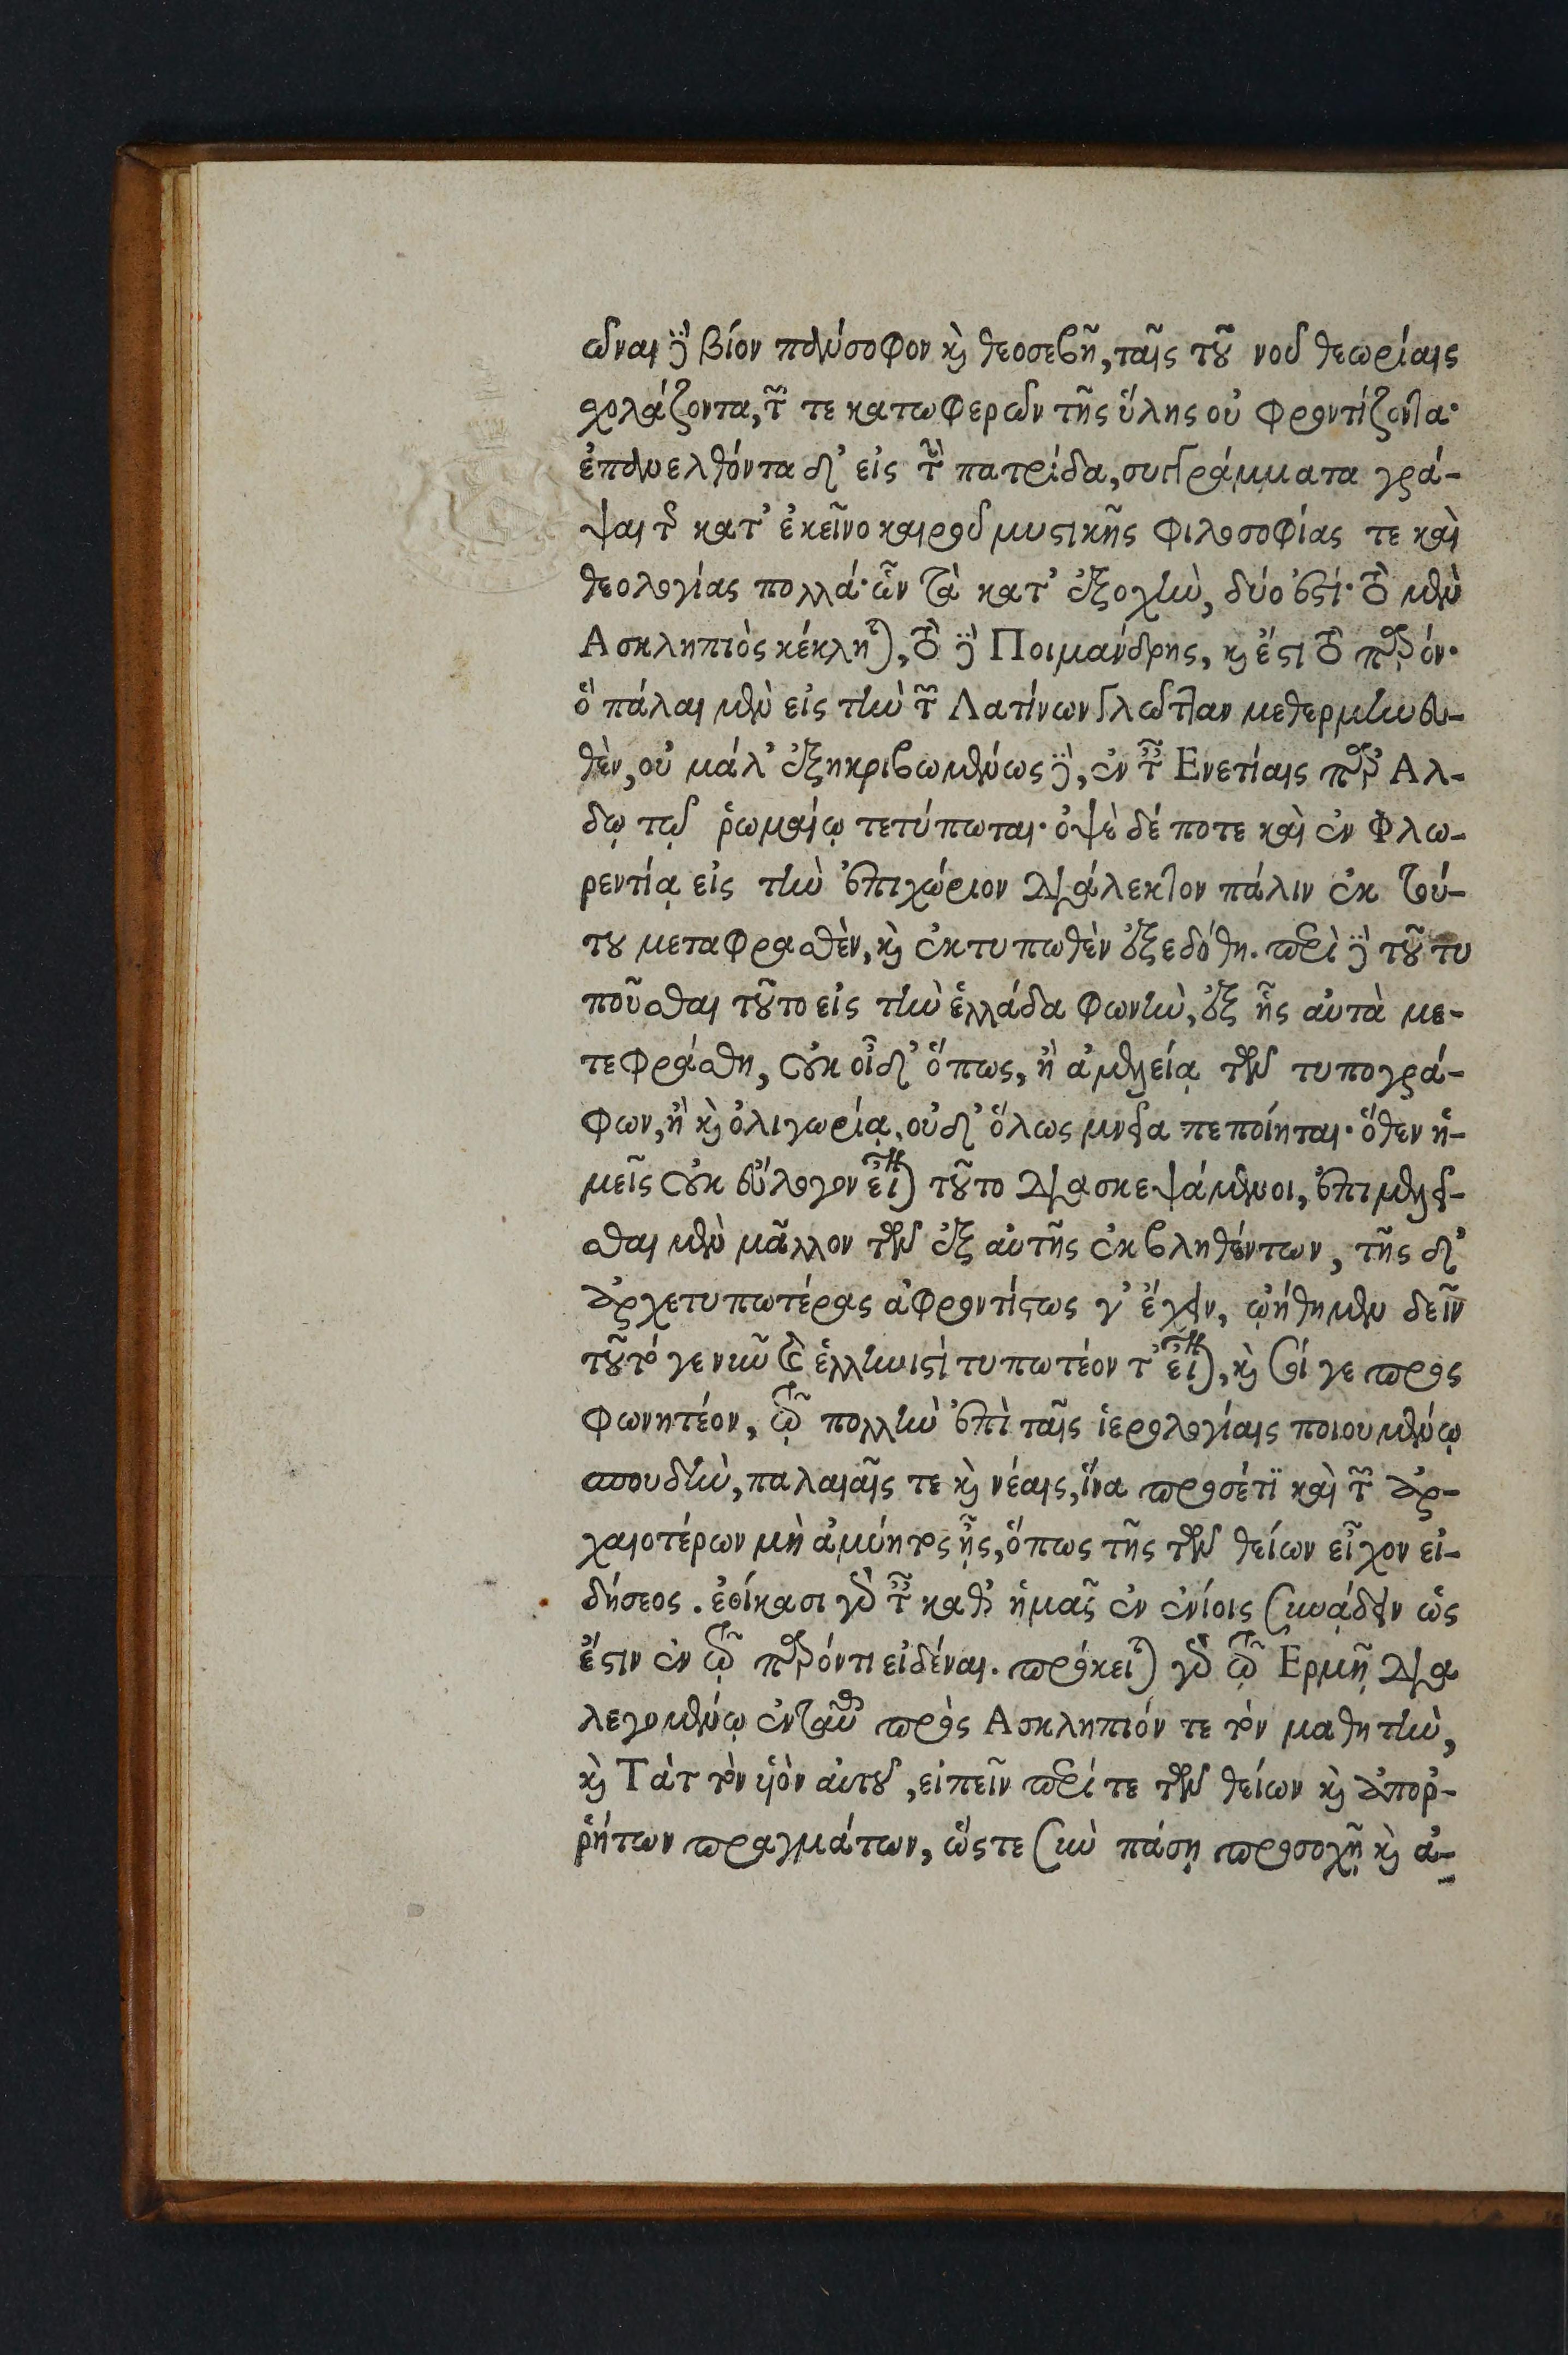 ῶναι δὲ βίον πάνσοφον καὶ θεοσεβῆ, ταῖς τοῦ νοῦ θεωρίαις
σχολάζοντα, τῶν τε κατωφερῶν τῆς ὕλης οὐ φροντίζοντα·
ἐπανελθόντα δ’ εἰς τὴν πατρίδα, συγγράμματα γρά-
ψαι τῆς κατ’ ἐκεῖνο καιροῦ μυστικῆς φιλοσοφίας τε καὶ
θεολογίας πολλά· ὧν τὰ κατ’ ἐξοχὴν, δύο ἐστί· τὸ μὲν
Ασκληπιὸς κέκληται, τὸ δὲ Ποιμάνδρης, καὶ ἔστι τὸ παρόν·
ὃ πάλαι μὲν εἰς τὴν τῶν Λατίνων γλῶτταν μεθερμηνευ-
θὲν, οὐ μάλ’ ἐξηκριβωμένως δὲ, ἐν ταῖς Ενετίαις παρ’ Αλ-
δῳ τῷ ῥωμαίῳ τετύπωται· ὀψὲ δέ ποτε καὶ ἐν Φλω-
ρεντίᾳ εἰς τὴν ἐπιχώριον διάλεκτον πάλιν ἐκ τού-
του μεταφρασθὲν, καὶ ἐκτυπωθὲν ἐξεδόθη. περὶ δὲ τοῦ τυ
ποῦσθαι τοῦτο εἰς τὴν ἑλλάδα φωνὴν, ἐξ ἧς αὐτὰ με-
τεφράσθη, οὐκ οἶδ’ ὅπως, ἢ ἀμελείᾳ τῶν τυπογρά-
φων, ἢ καὶ ὀλιγωρίᾳ, οὐδ’ ὅλως μνεία πεποίηται· ὅθεν ἡ-
μεῖς οὐκ εὔλογον εἶναι τοῦτο διασκεψάμενοι, ἐπιμελεῖ-
σθαι μὲν μᾶλλον τῶν ἐξ αὐτῆς ἐκβληθέντων, τῆς δ’
ἀρχετυπωτέρας ἀφροντίστως γ’ ἔχειν, ᾠήθημεν δεῖν
τοῦτό γε νῦν καὶ ἑλληνιστὶ τυπωτέον τ’ εἶναι, καὶ σοί γε προς
φωνητέον, τῷ πολλὴν ἐπὶ ταῖς ἱερολογίαις ποιουμένῳ
σπουδὴν, παλαιαῖς τε καὶ νέαις, ἵνα προσέτϊ καὶ τῶν ἀρ-
χαιοτέρων μὴ ἀμύητος ᾖς, ὅπως τῆς τῶν θείων εἶχον εἰ-
δήσεος. ἐοίκασι γὰρ τοῖς καθ’ ἡμᾶς ἐν ἐνίοις συνᾴδειν ὡς
ἔστιν ἐν τῷ παρόντι εἰδέναι. πρόκειται γὰρ τῷ Ερμῇ δια
λεγομένῳ ἐνταῦθα πρὸς Ασκληπιόν τε τὸν μαθητὴν,
καὶ Τὰτ τὸν υἱὸν αὑτοῦ, εἰπεῖν περί τε τῶν θείων καὶ ἀποῤ-
ῥήτων πραγμάτων, ὥστε σὺν πάσῃ προσοχῇ καὶ ἀ-